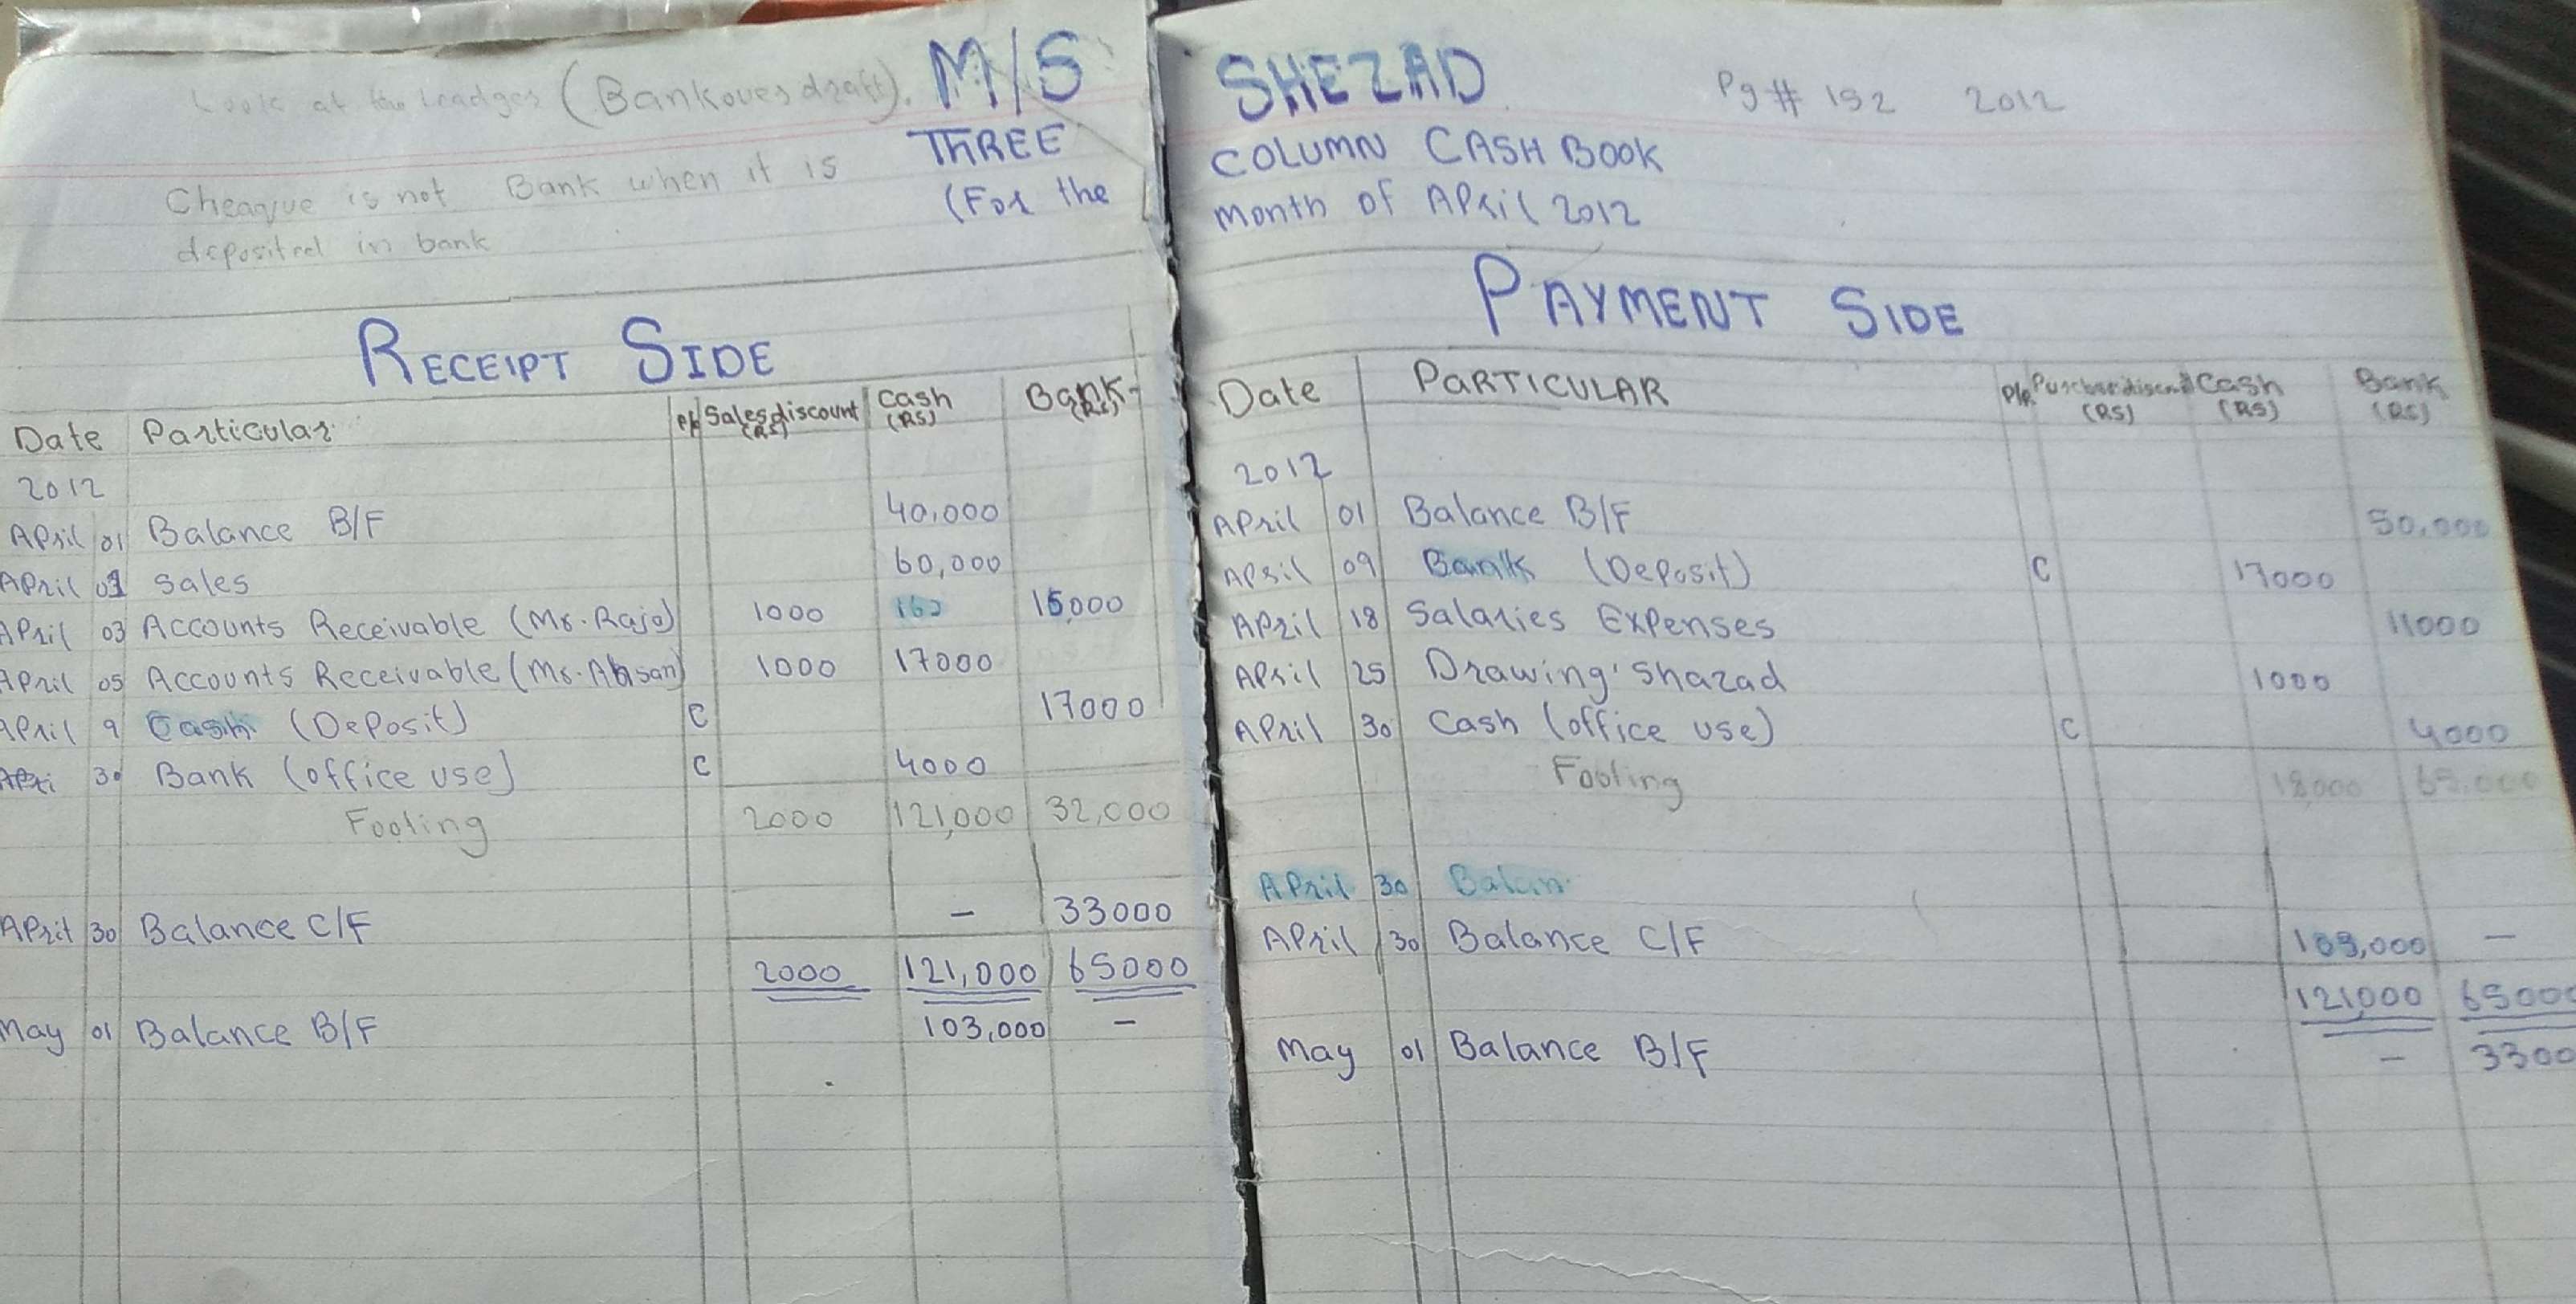 Look at the Leadger (Bankoverdraft).
Cheaque is not Bank when it is
deposited in bank
M/S SHEZAD
Pg # 152 2012
THREE COLUMN CASH BOOK
(For the month of APril 2012
RECEIPT SIDE
Date Particular P/R Sales discount (RS) Cash (RS) Bank (RS)
2012
APril 01 Balance B/F 40,000
APril 01 Sales 60,000
APril 03 Accounts Receivable (Mr. Raja) 1000 15,000
APril 05 Accounts Receivable (Mr. Ahsan) 1000 17000
APril 9 Cash (Deposit) C 17000
APri 30 Bank (office use) C 4000
Footing 2000 121,000 32,000
APril 30 Balance C/F - 33000
2000 121,000 65000
May 01 Balance B/F 103,000 -
PAYMENT SIDE
Date PARTICULAR P/R Purchase discount (RS) Cash (RS) Bank (RS)
2012
APril 01 Balance B/F 50,000
APril 09 Bank (Deposit) C 17000
APril 18 Salaries Expenses 11000
APril 25 Drawing'Shazad 1000
APril 30 Cash (office use) C 4000
Footing 18,000 65,000
APril 30 Balan
APril 30 Balance C/F 103,000 -
121,000 65000
May 01 Balance B/F - 3300